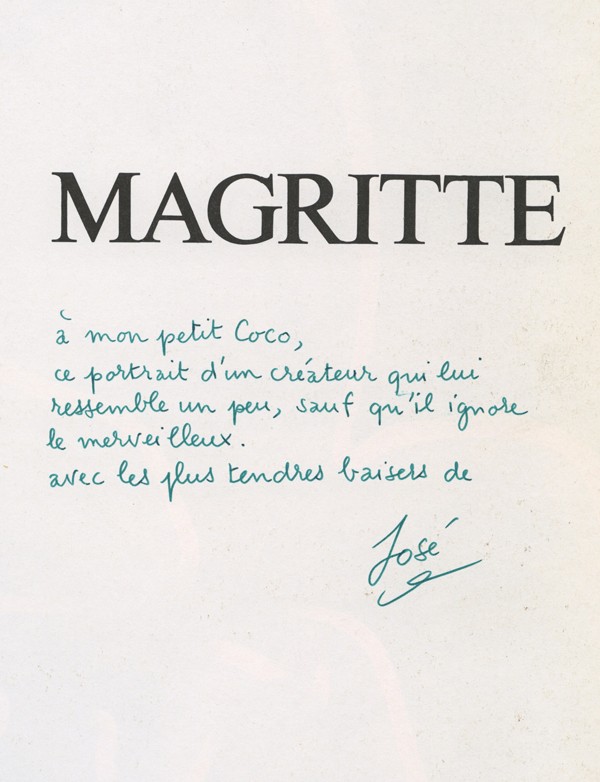 MAGRITTE
à mon petit Coco,
ce portrait d'un créateur qui lui
ressemble un peu, sauf qu'il ignore
le merveilleux.
avec les plus tendres baisers de
José